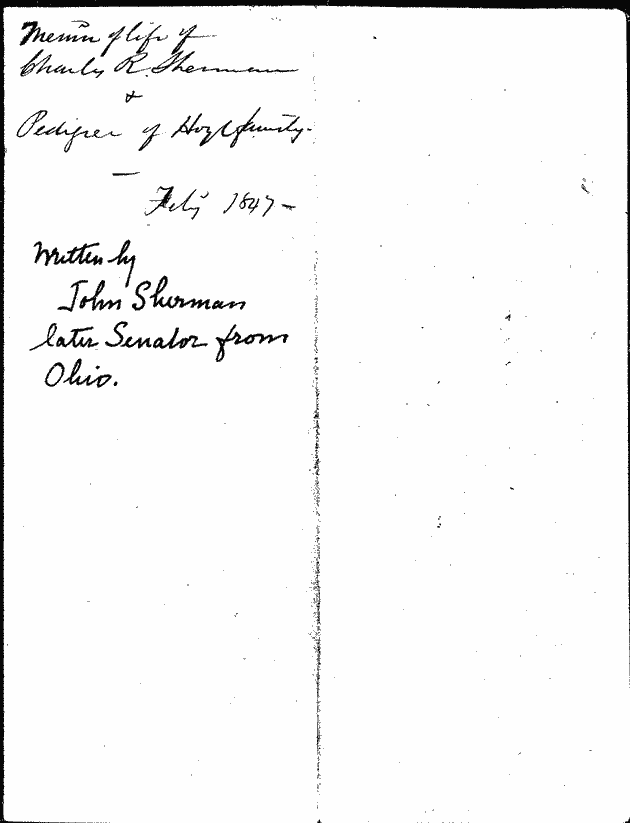 Memm of life of
Charles R. Sherman
&
Pedigree of Hoyt family.
—
Feby 1847 –
Written by
John Sherman
later Senator from
Ohio.